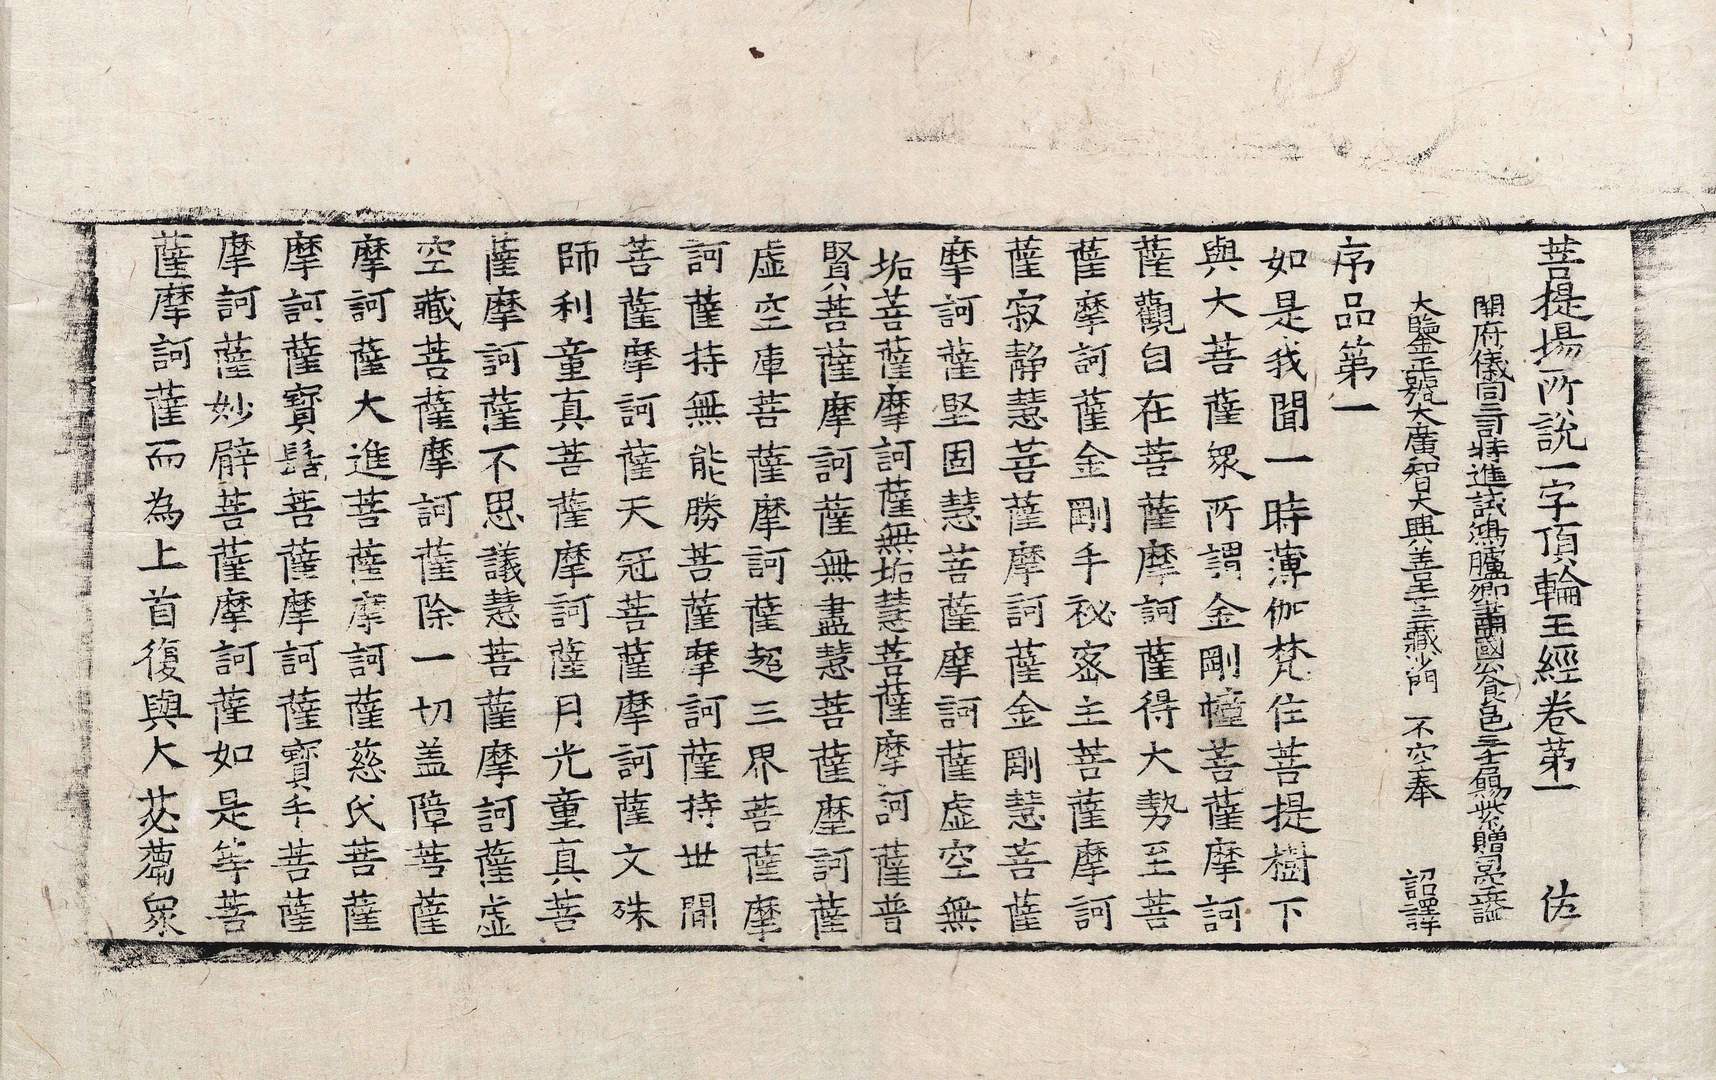 菩提場所說一字頂輪王經卷第一 佐
開府儀同三司特進試鴻臚卿肅國公食邑三千戶賜紫贈司空謚
大鑒正號大廣智大興善寺三藏沙門 不空奉 詔譯
序品第一
如是我聞一時薄伽梵住菩提樹下
與大菩薩衆所謂金剛幢菩薩摩訶
薩觀自在菩薩摩訶薩得大勢至菩
薩摩訶薩金剛手祕密主菩薩摩訶
薩寂静慧菩薩摩訶薩金剛慧菩薩
摩訶薩堅固慧菩薩摩訶薩虛空無
垢菩薩摩訶薩無垢慧菩薩摩訶薩普
賢菩薩摩訶薩無盡慧菩薩摩訶薩
虛空庫菩薩摩訶薩超三界菩薩摩
訶薩持無能勝菩薩摩訶薩持世間
菩薩摩訶薩天冠菩薩摩訶薩文殊
師利童真菩薩摩訶薩月光童真菩
薩摩訶薩不思議慧菩薩摩訶薩虛
空藏菩薩摩訶薩除一切盖障菩薩
摩訶薩大進菩薩摩訶薩慈氏菩薩
摩訶薩寶髻菩薩摩訶薩寶手菩薩
摩訶薩妙臂菩薩摩訶薩如是等菩
薩摩訶薩而為上首復與大苾蒭衆